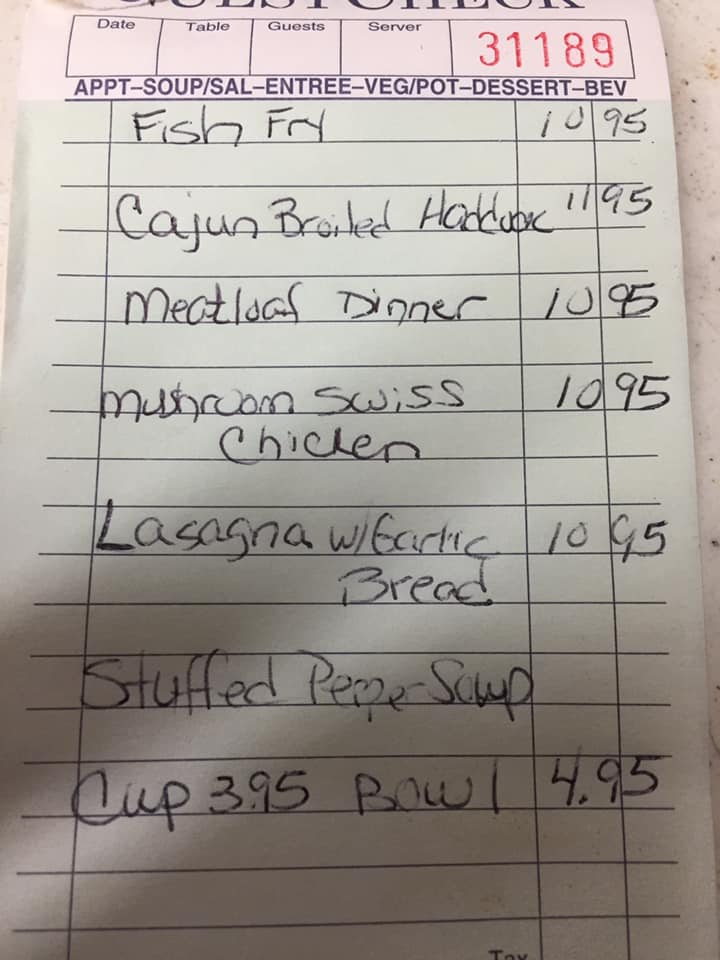 GUEST CHECK
Date Table Guests Server 31189
APPT–SOUP/SAL–ENTREE–VEG/POT–DESSERT–BEV
Fish Fry 10 95
Cajun Broiled Haddock 11 95
Meatloaf Dinner 10 95
Mushroom Swiss 10 95
Chicken
Lasagna w/Garlic 10 95
Bread
Stuffed Pepper Soup
Cup 3.95 Bowl 4.95
Tax